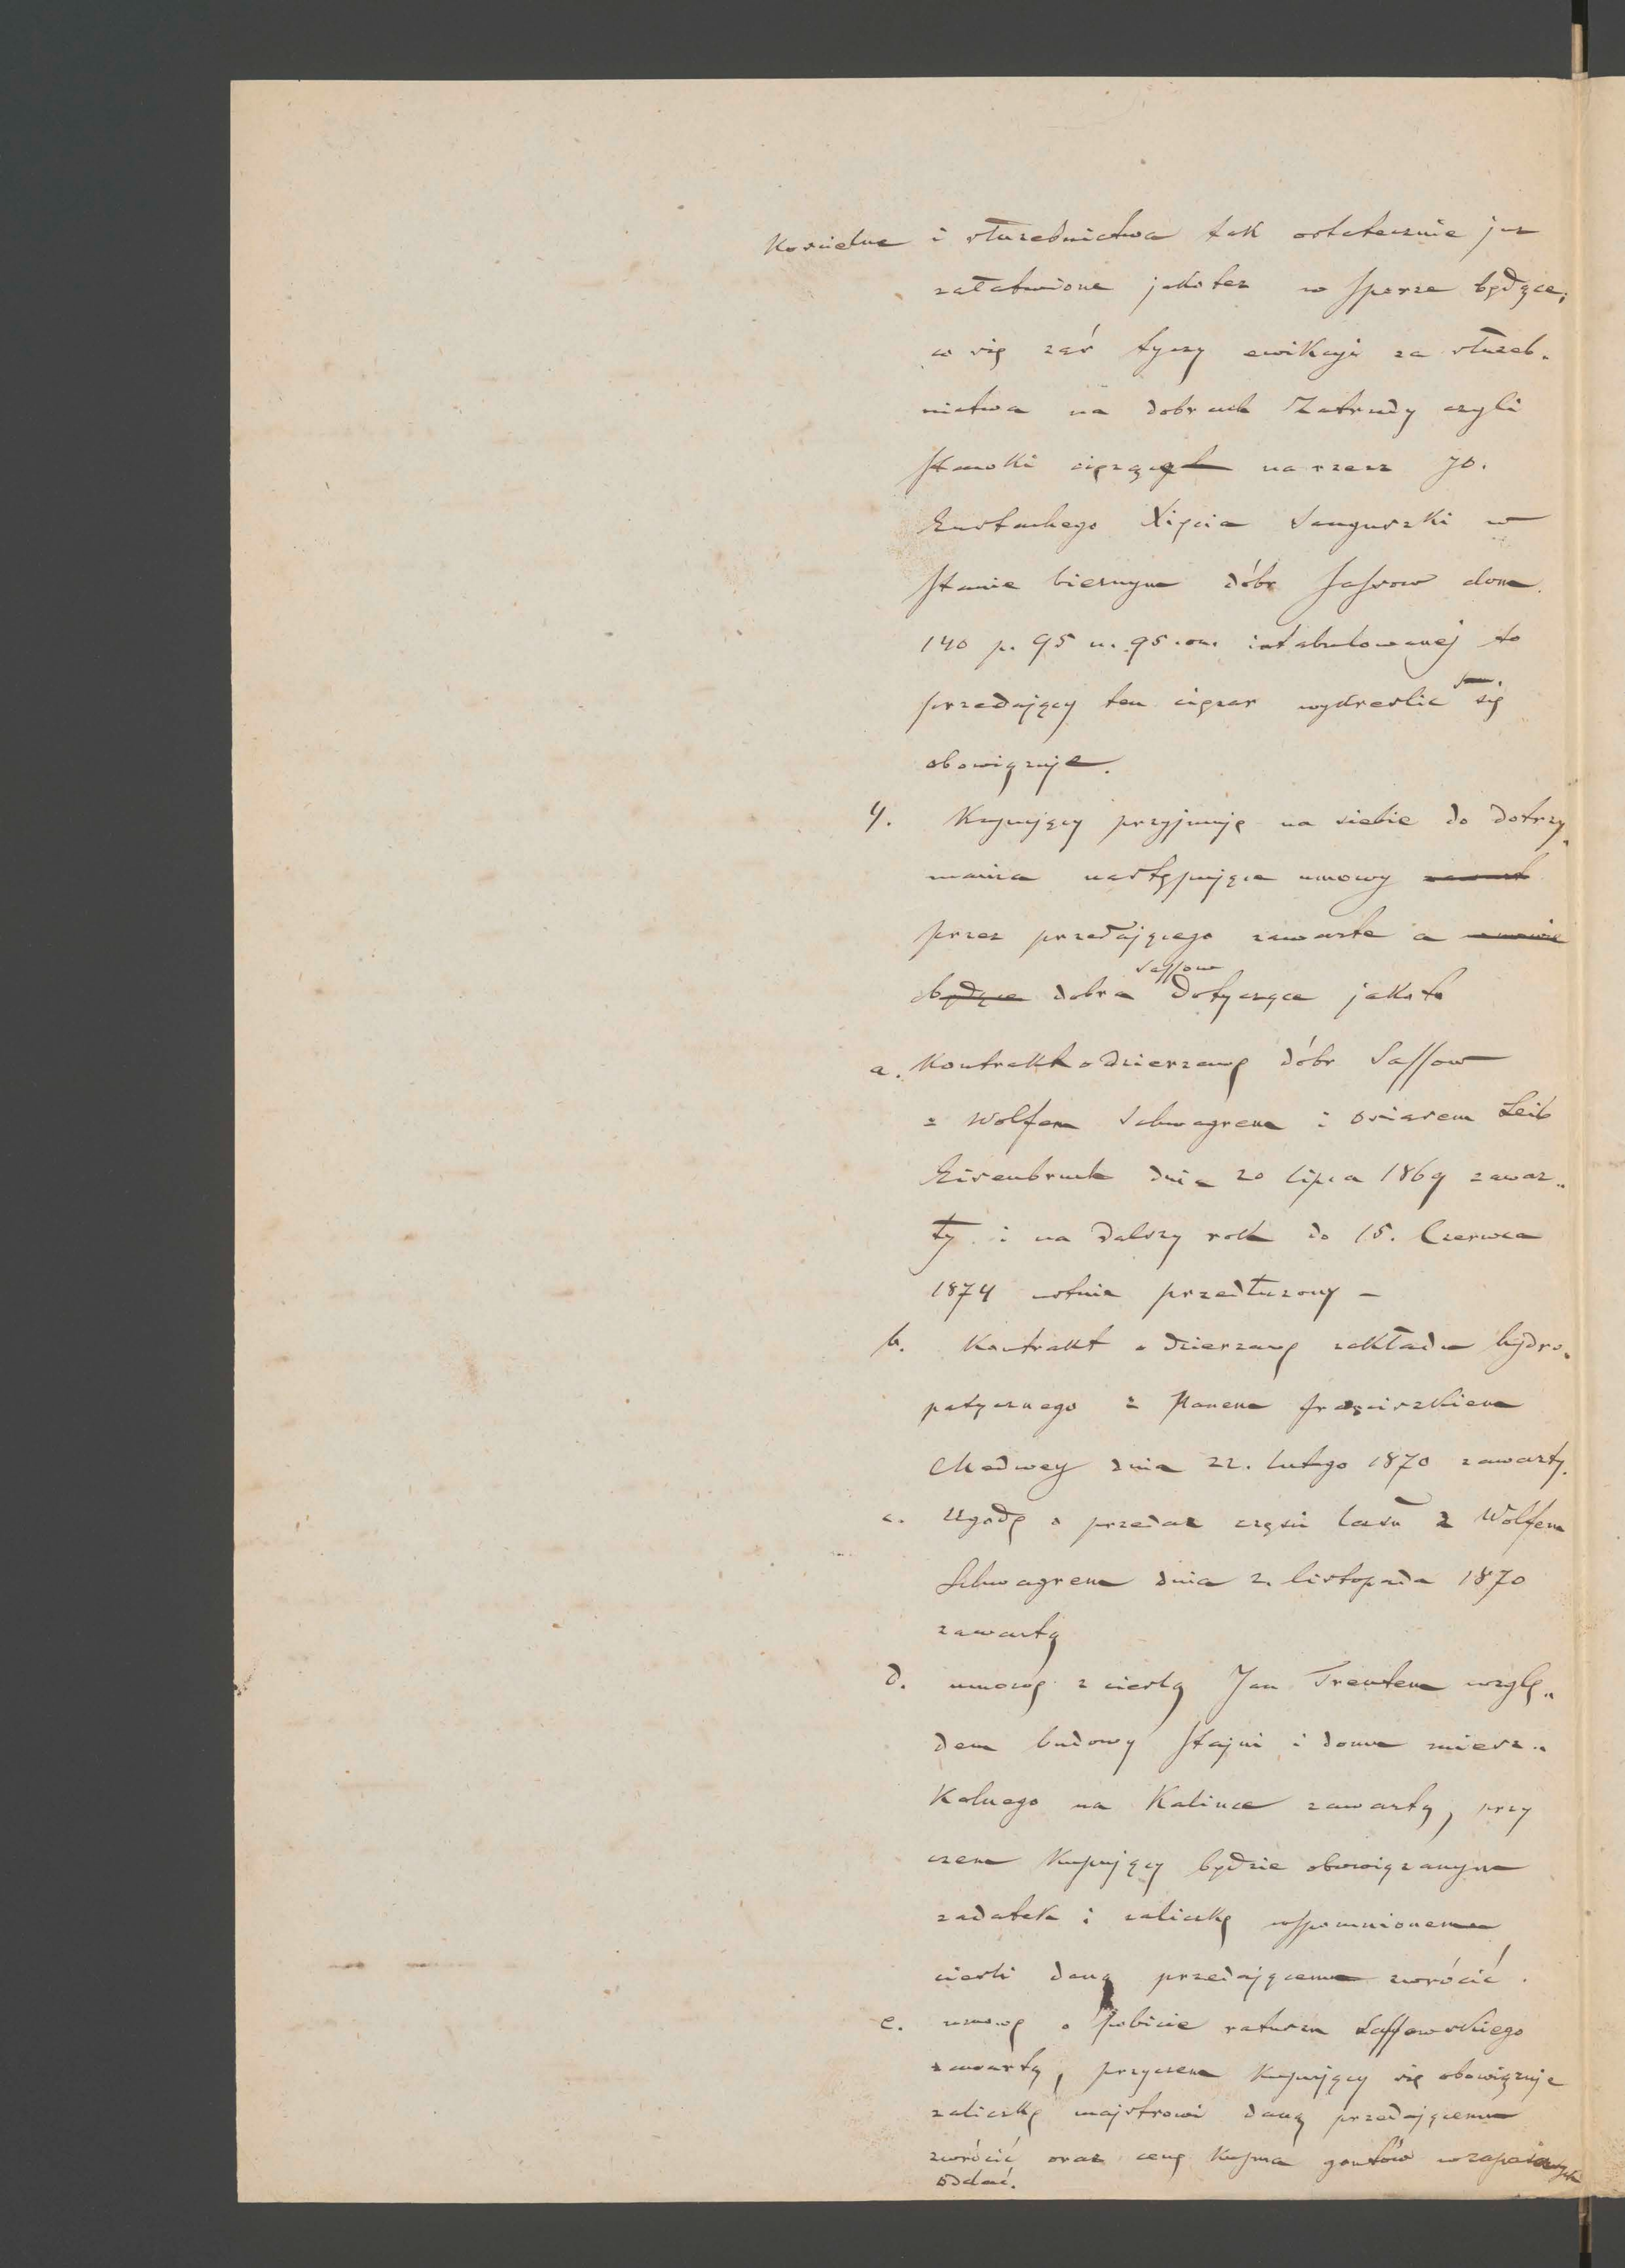 Koscielne i służebnictwa tak ostatecznie juz
załatwione jakotez w sporze będące;
co się zaś tyczy ewikcyi za służeb„
nictwa na dobrach Zatrudy czyli
Stawki ciężących na rzecz JO.
Eustachego Xięcia Sanguszki w
stanie biernym dóbr Sassow dom.
140 p. 95 n. 95. on. intabulowanej to
przedający ten cięzar wykreslic się
obowiązuje.
4. Kupujący przyjmuje na siebie do dotrzy„
mania następujące umowy
przez przedającego zawarte a
będące dobra Sassow dotyczące jakoto
a. Kontrakt o dzierzawę dóbr Sassow
z Wolfem Schwagrem i Osiasem Leib
Eisenbruch dnia 20 lipca 1869 zawar„
ty i na dalszy rok do 15. Czerwca
1874 ustnie przedłuzony –
b. Kontrakt o dzierzawę zakładu hydro„
patycznego z Panem Franciszkiem
Medwey dnia 22. lutego 1870 zawarty.
c. Ugodę o przedaz częsci lasu z Wolfem
Schwagrem dnia 2. listopada 1870
zawartą
d. umowę z cieslą Jan Trentem wzglę„
dem budowy stajni i domu miesz„
kalnego na Kalince zawartą, przy
czem Kupujący będzie obowiązanym
zadatek i zaliczkę wspomnionemu
ciesli daną przedającemu zwrócić.
e. umowę o pobicie ratusza Sassowskiego
zawartą, przyczem Kupujący się obowiązuje
zaliczkę majstrowi daną przedającemu
zwrócić oraz cenę kupna gontów w zapasie
oddać.